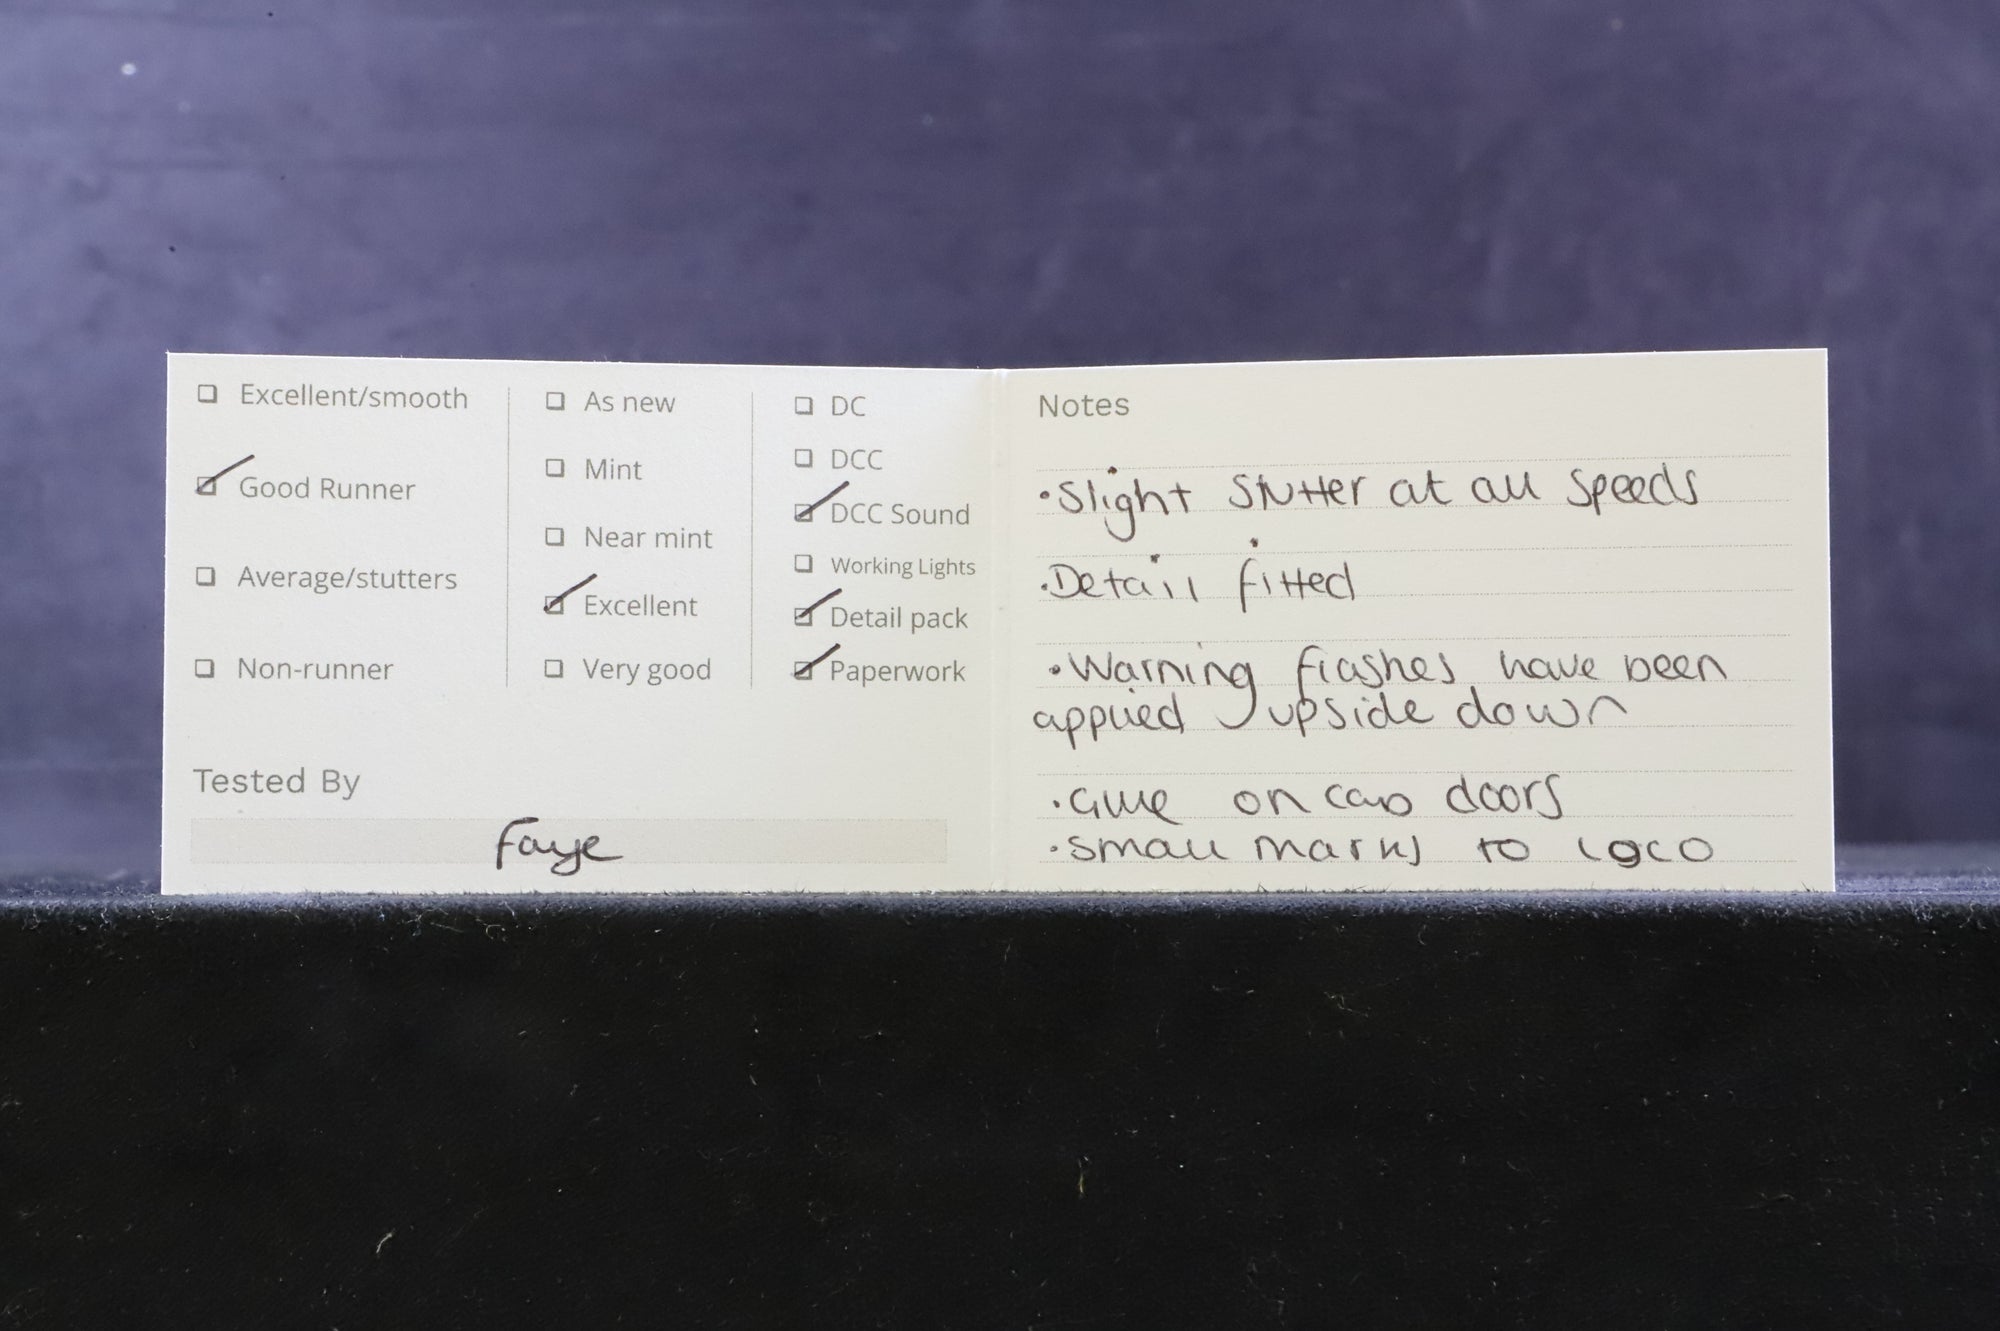 Excellent/smooth
Good Runner
Average/stutters
Non-runner
As new
Mint
Near mint
Excellent
Very good
DC
DCC
DCC Sound
Working Lights
Detail pack
Paperwork
Tested By
Faye
Notes
•Slight stutter at all speeds
•Detail fitted
•Warning flashes have been
applied upside down
•Glue on cab doors
•Small marks to loco